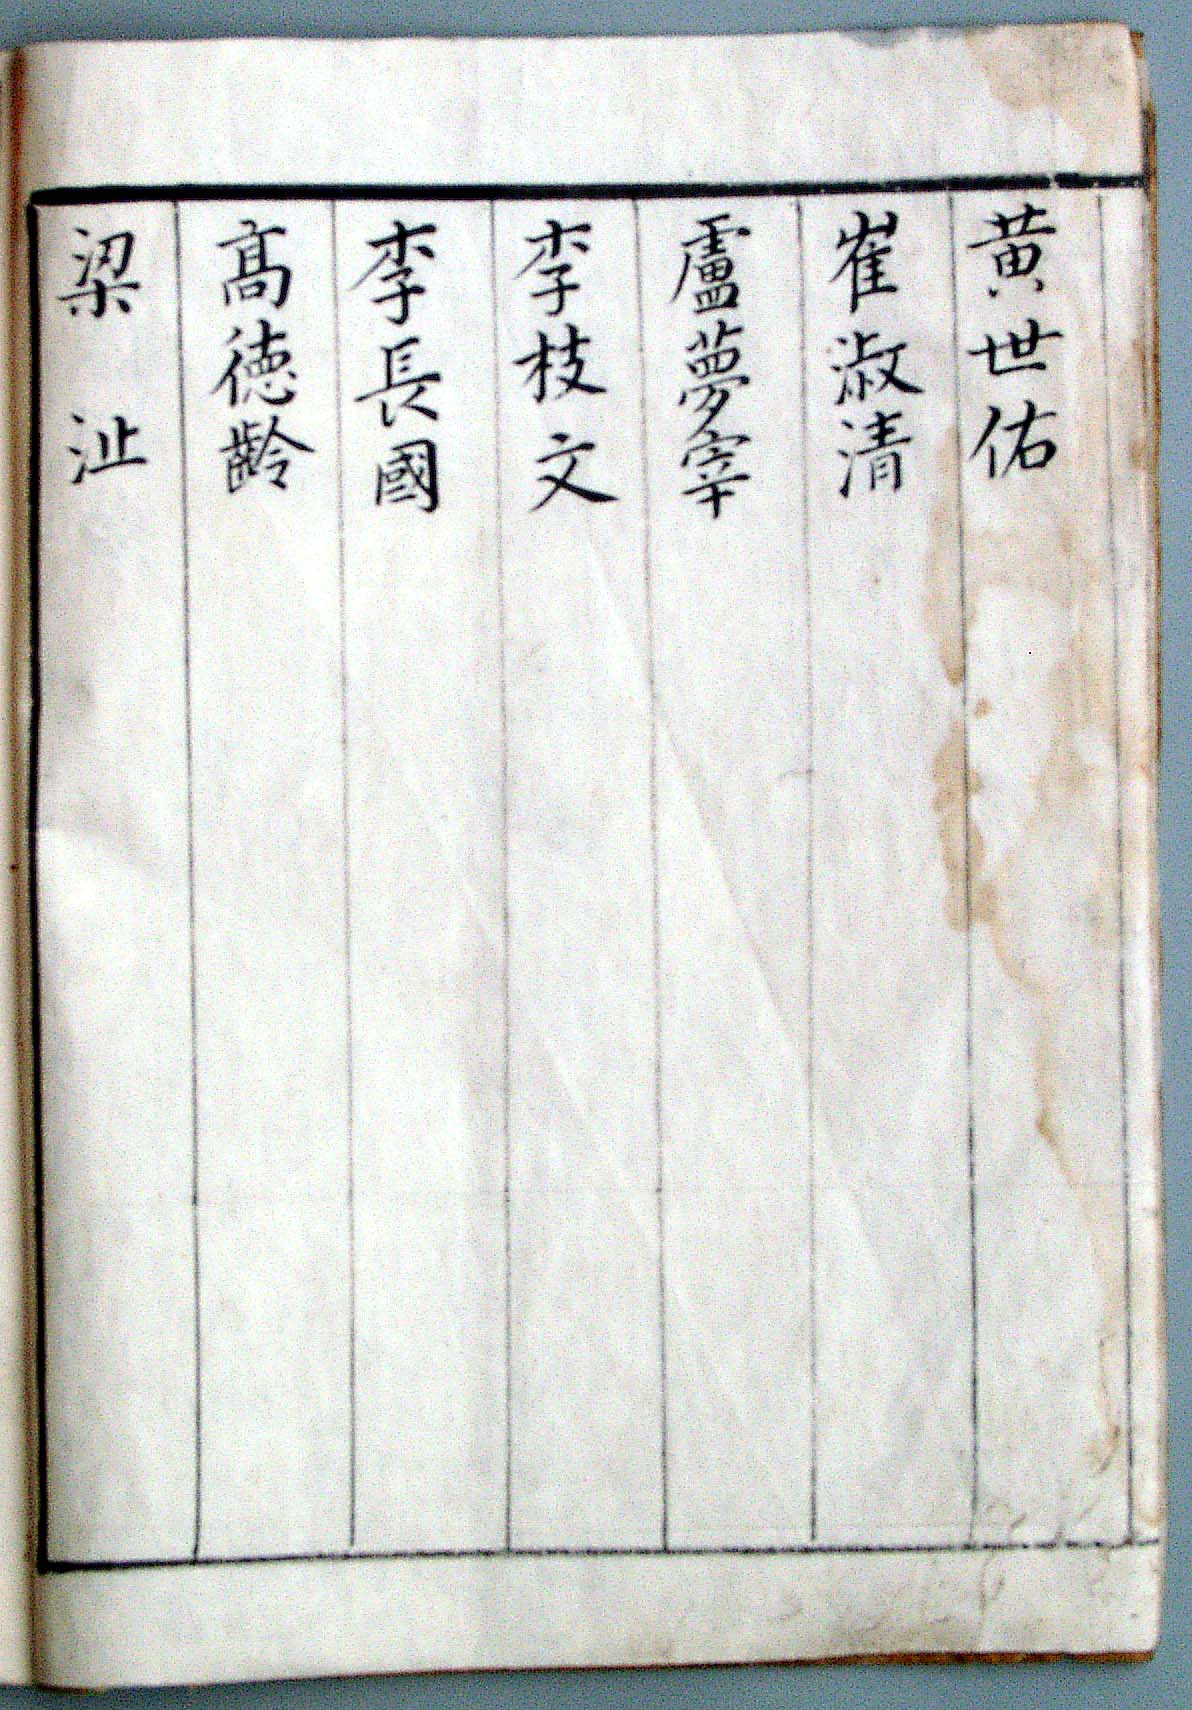 黄世佑
崔淑清
盧夢宰
李枝文
李長國
髙徳齢
梁沚